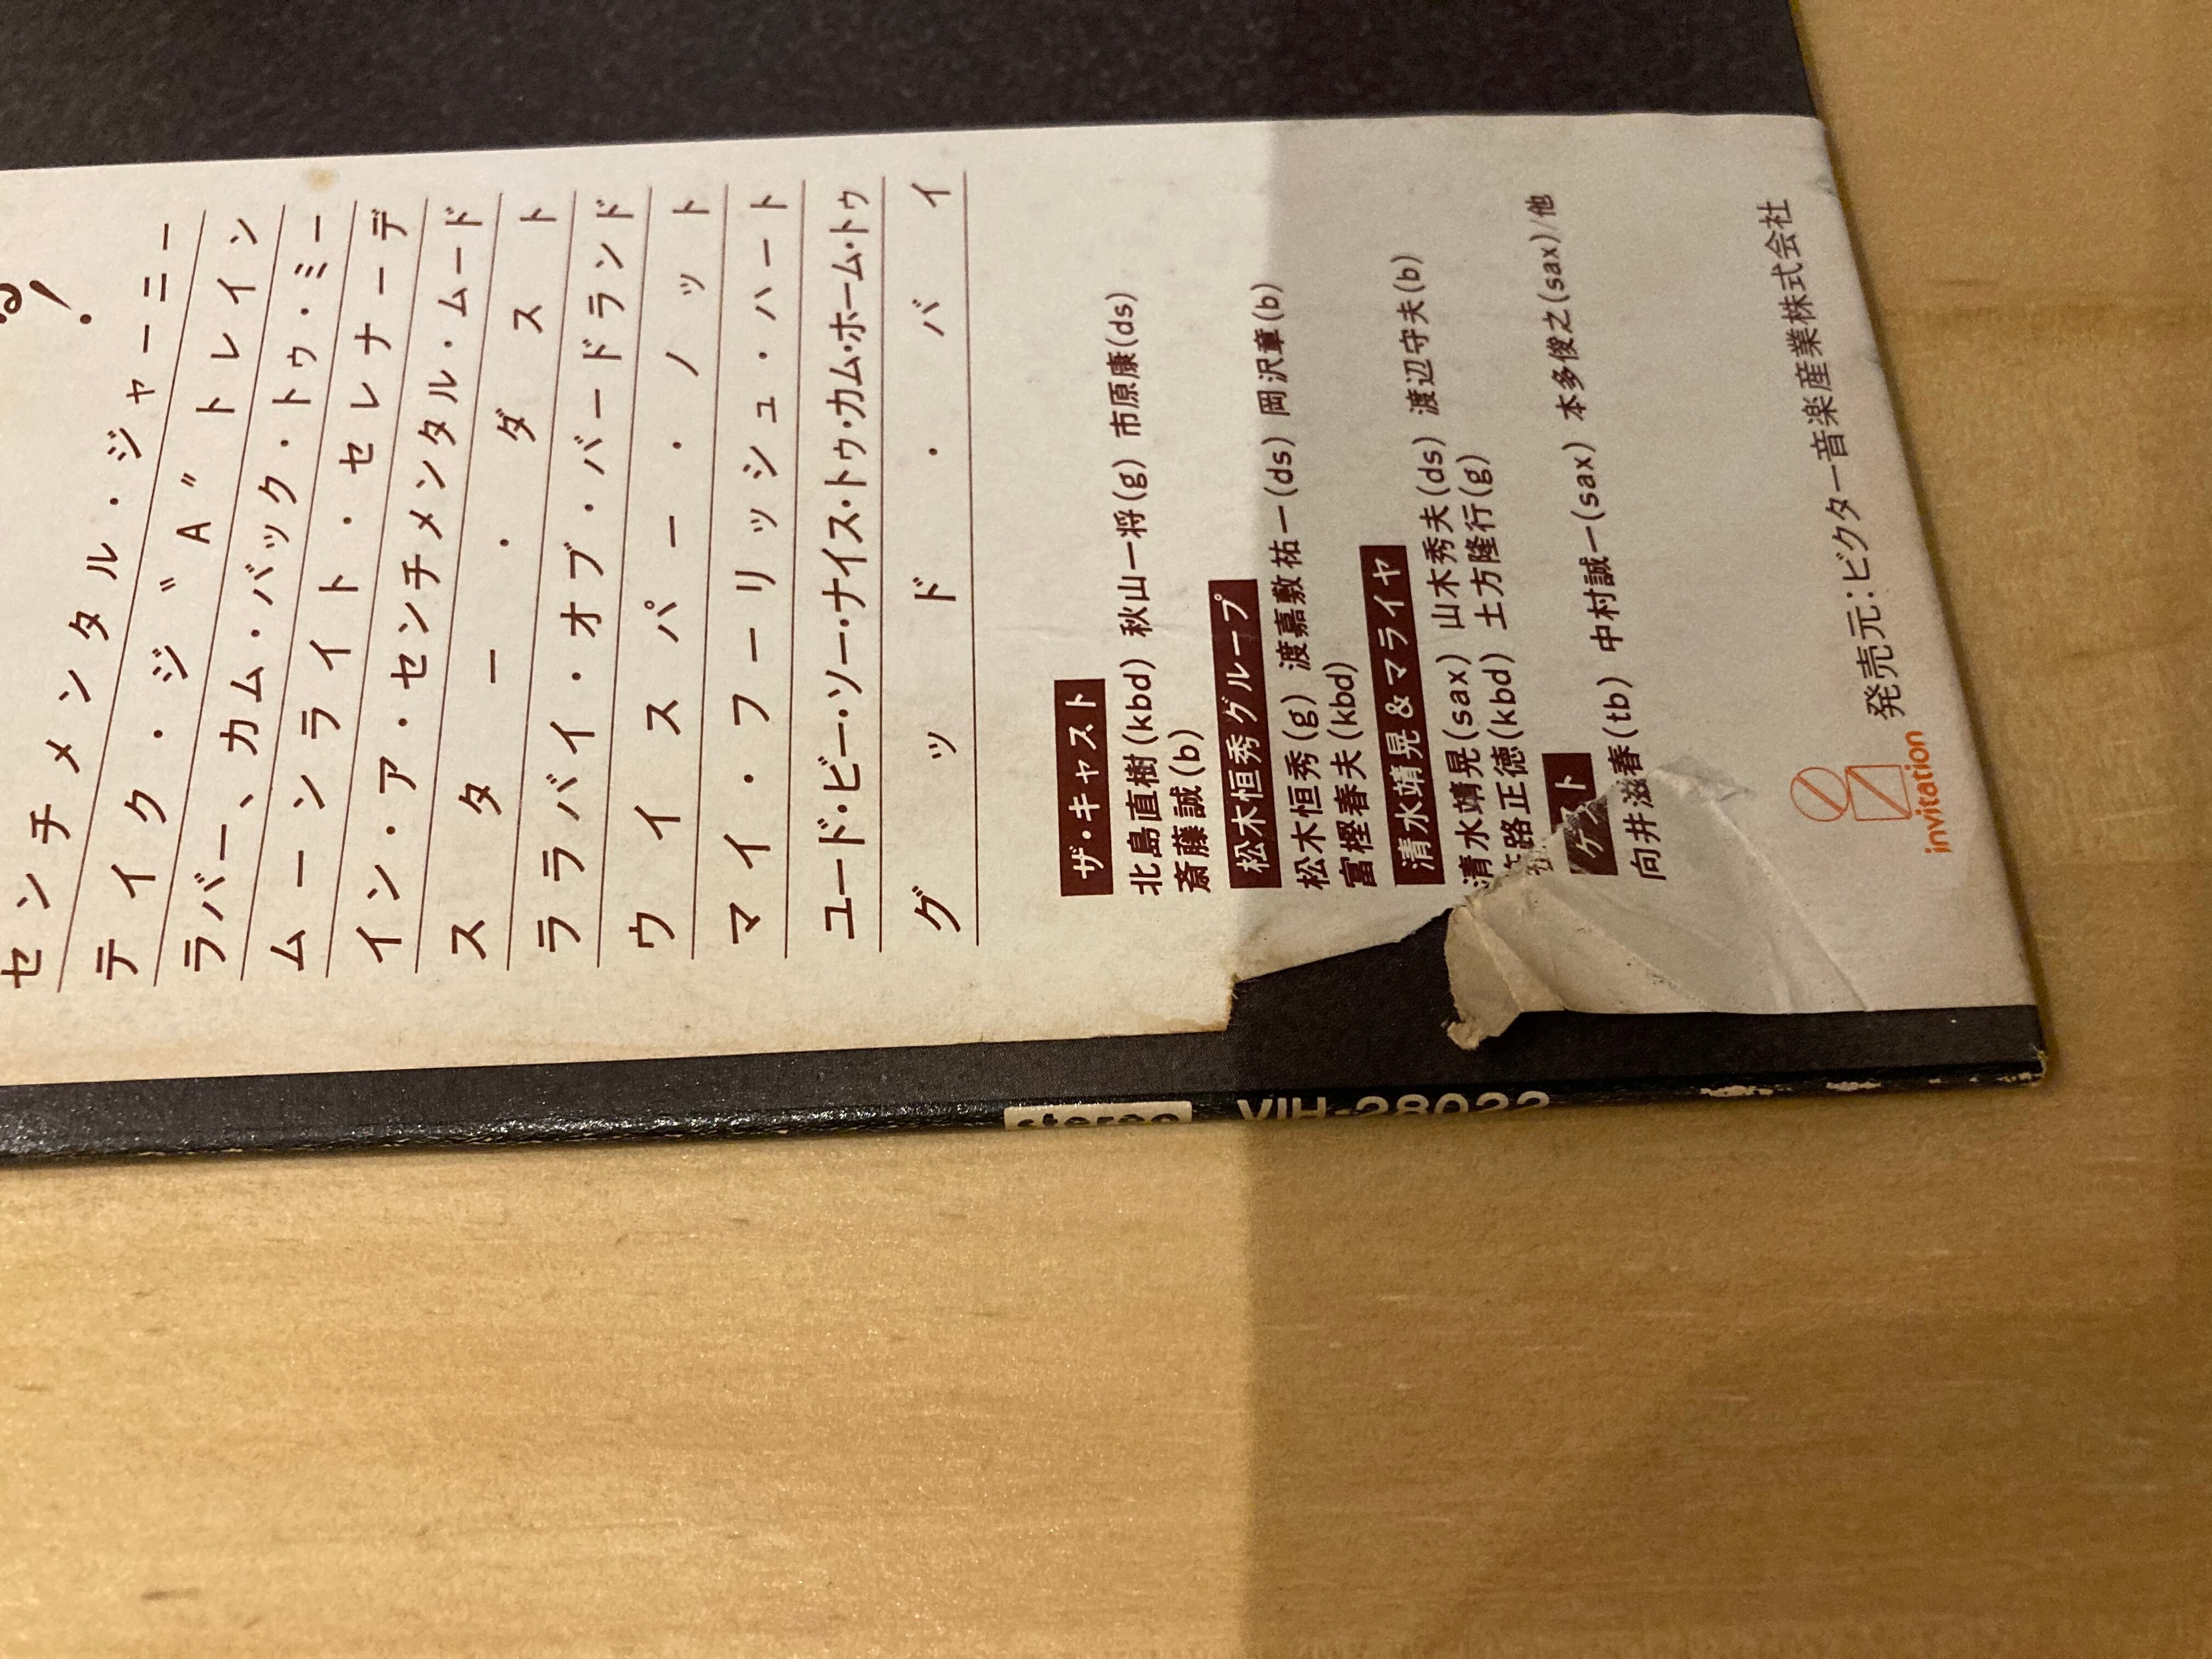 る!
センチメンタル・ジャーニー
テイク・ジ〝A〟トレイン
ラバー、カム・バック・トゥ・ミー
ムーンライト・セレナーデ
イン・ア・センチメンタル・ムード
スター・ダスト
ララバイ・オブ・バードランド
ウイスパー・ノット
マイ・フーリッシュ・ハート
ユード・ビー・ソー・ナイス・トゥ・カム・ホーム・トゥ
グッド・バイ
ザ・キャスト
北島直樹(kbd) 秋山一将(g) 市原康(ds)
斎藤誠(b)
松木恒秀グループ
松木恒秀(g) 渡嘉敷祐一(ds) 岡沢章(b)
富樫春夫(kbd)
清水靖晃&マライヤ
清水靖晃(sax) 山木秀夫(ds) 渡辺守夫(b)
笹路正徳(kbd) 土方隆行(g)
ゲスト
向井滋春(tb) 中村誠一(sax) 本多俊之(sax)/他
invitation 発売元:ビクター音楽産業株式会社
stereo VIH-28022